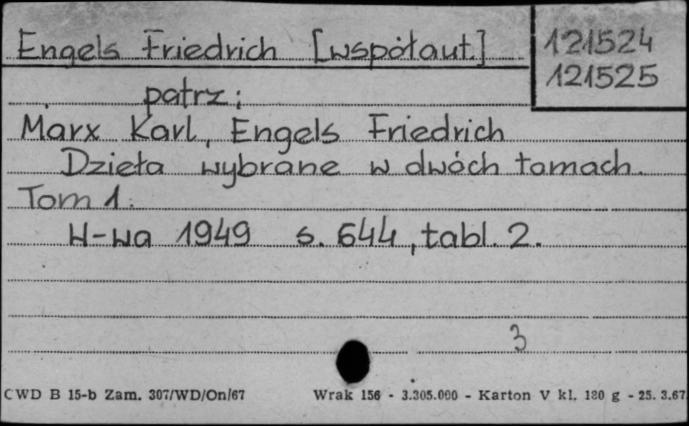 Engels Friedrich [współaut.]
121524
121525
patrz:
Marx Karl, Engels Friedrich
Dzieła wybrane w dwóch tomach.
Tom 1.
W-wa 1949 s. 644, tabl. 2.
3
CWD B 15-b Zam. 307/WD/On/67 Wrak 156 - 3.305.000 - Karton V kl. 180 g - 25. 3.67